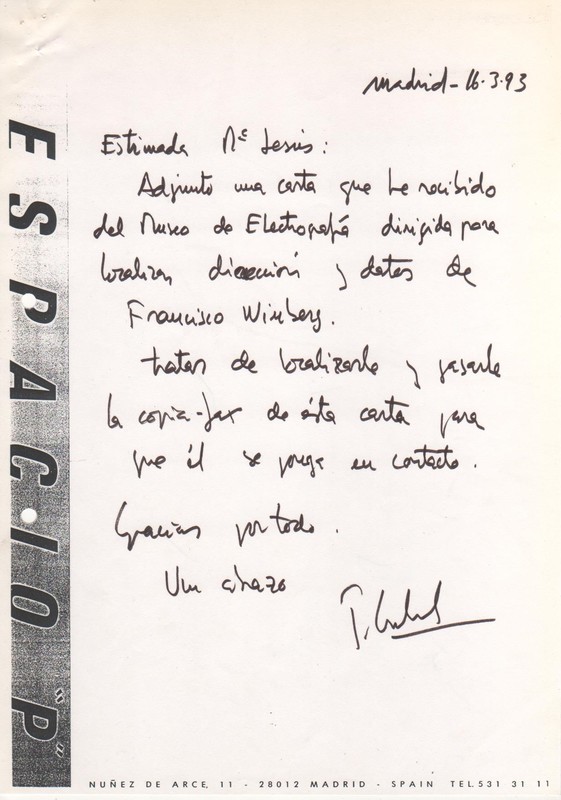 Madrid - 16.3.93
Estimada Mª Jesús:
Adjunto una carta que he recibido
del Museo de Electrografía dirigida para
localizar dirección y datos de
Francisco Winberg.
tratar de localizarle y pasarle
la copia-fax de ésta carta para
que él se ponga en contacto.
Gracias por todo.
Un abrazo
ESPACIO "P"
NUÑEZ DE ARCE, 11 - 28012 MADRID - SPAIN TEL. 531 31 11